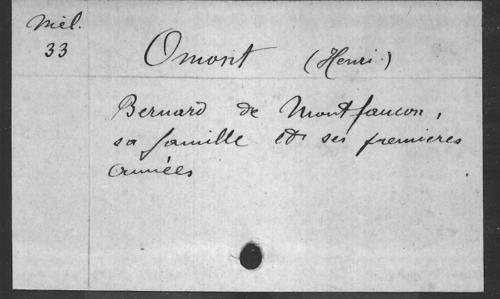 Mél.
33
Omont (Henri.)
Bernard de Montfaucon,
sa famille et ses premieres
années